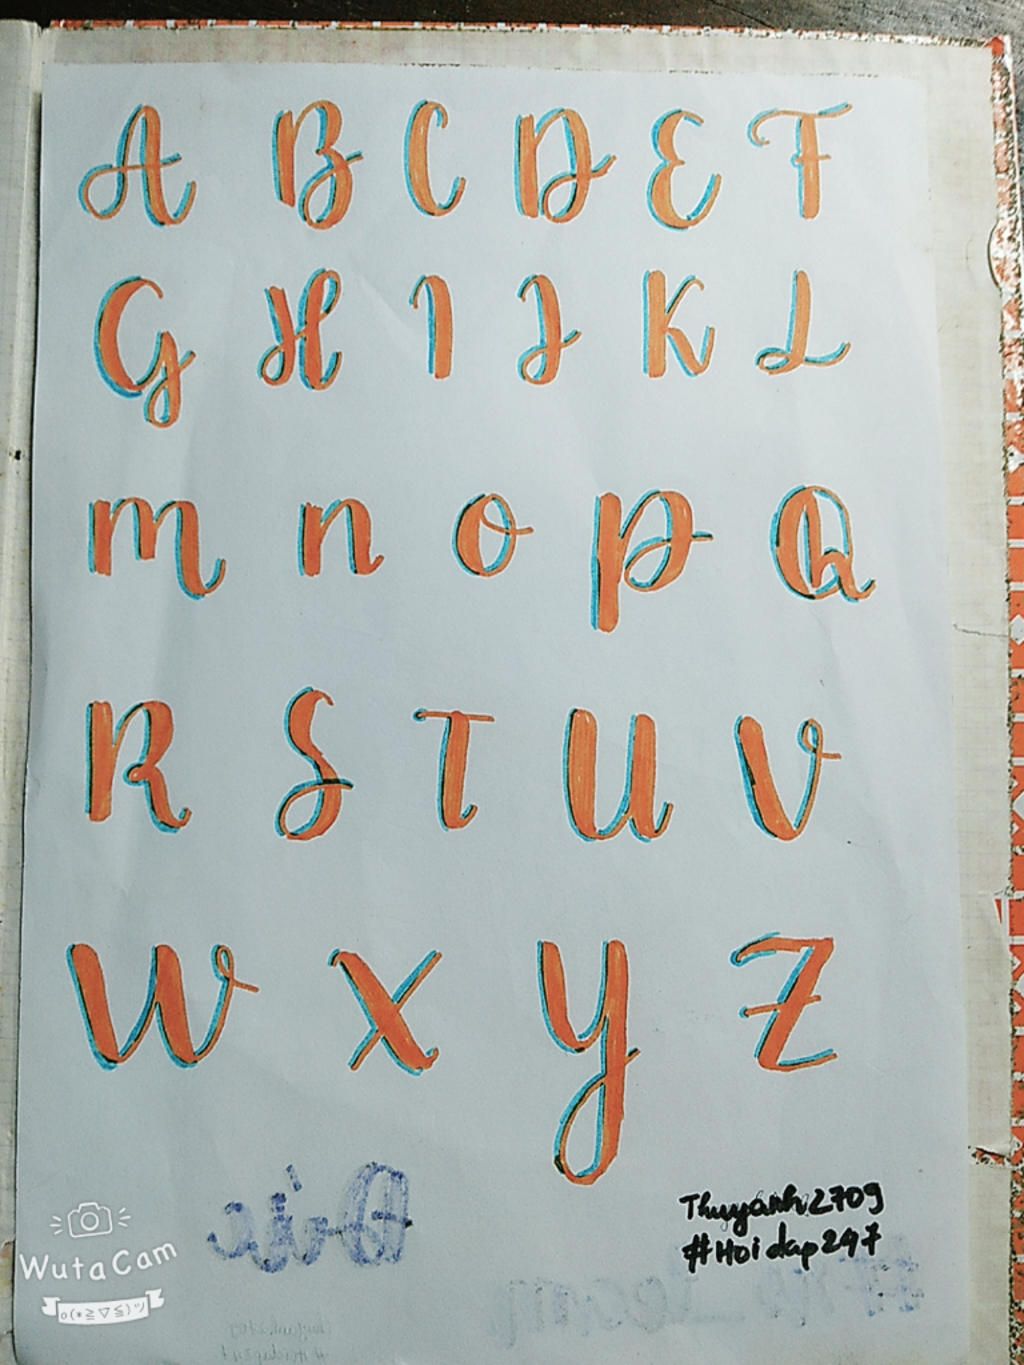 A B C D E F
G H I J K L
m n o p Q
R S T U V
W X Y Z
Thuyanh2709
#Hoidap247
WutaCam
o(*≧▽≦)ツ